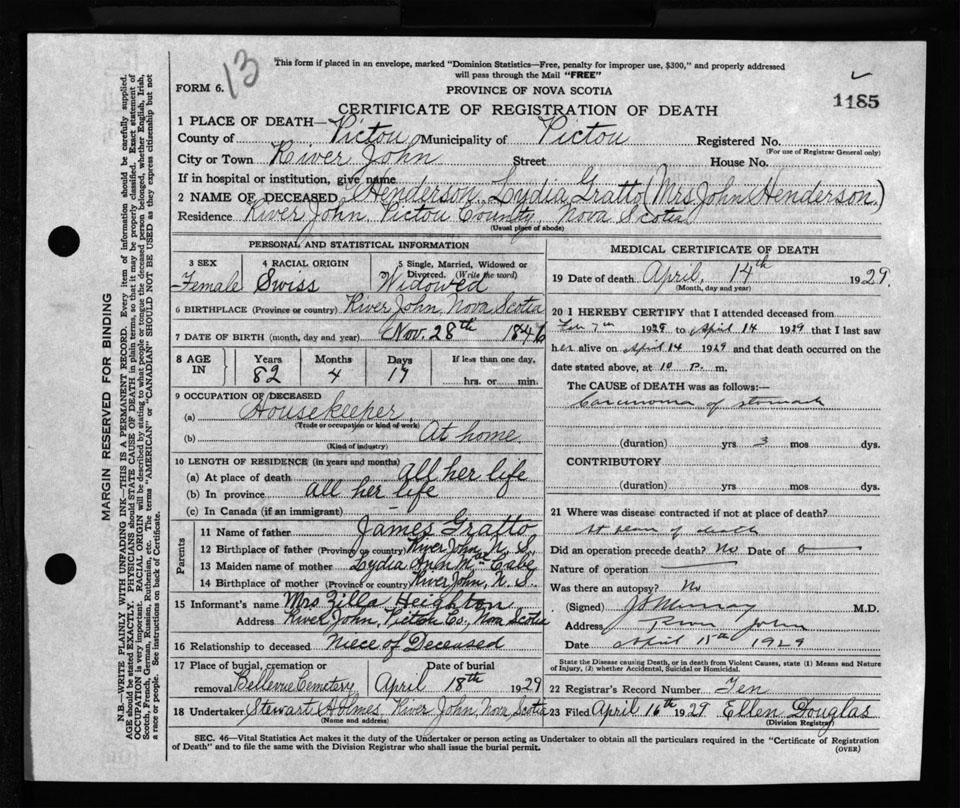 13
This form if placed in an envelope, marked "Dominion Statistics—Free, penalty for improper use, $300," and properly addressed
will pass through the Mail "FREE"
FORM 6.
PROVINCE OF NOVA SCOTIA
1185
CERTIFICATE OF REGISTRATION OF DEATH
1 PLACE OF DEATH—
County of Pictou Municipality of Pictou Registered No.
(For use of Registrar General only)
City or Town River John Street House No.
If in hospital or institution, give name
2 NAME OF DECEASED Henderson, Lydia Gratto (Mrs John Henderson.)
Residence River John, Pictou County, Nova Scotia
(Usual place of abode)
PERSONAL AND STATISTICAL INFORMATION
3 SEX 4 RACIAL ORIGIN 5 Single, Married, Widowed or
Divorced. (Write the word)
Female Swiss Widowed
6 BIRTHPLACE (Province or country) River John, Nova Scotia
7 DATE OF BIRTH (month, day and year) Nov. 28th 1846
8 AGE IN Years Months Days If less than one day,
82 4 17 hrs. or min.
9 OCCUPATION OF DECEASED
(a) Housekeeper.
(Trade or occupation or kind of work)
(b) At home.
(Kind of industry)
10 LENGTH OF RESIDENCE (in years and months)
(a) At place of death all her life
(b) In province all her life
(c) In Canada (if an immigrant) -
Parents
11 Name of father James Gratto
12 Birthplace of father (Province or country) River John, N. S.
13 Maiden name of mother Lydia Ann McCabe
14 Birthplace of mother (Province or country) River John, N. S.
15 Informant's name Mrs Zilla Heighton
Address River John, Pictou Co., Nova Scotia
16 Relationship to deceased Niece of Deceased
17 Place of burial, cremation or Date of burial
removal Bellevue Cemetery April 18th 1929
18 Undertaker Stewart Holmes River John, Nova Scotia
(Name and address)
MEDICAL CERTIFICATE OF DEATH
19 Date of death April, 14th 1929.
(Month, day and year)
20 I HEREBY CERTIFY that I attended deceased from
1929 to April 14 1929 that I last saw
her alive on April 14 1929 and that death occurred on the
date stated above, at 10 P. m.
The CAUSE OF DEATH was as follows:—
Carcinoma of stomach
(duration) yrs 3 mos dys.
CONTRIBUTORY
(duration) yrs mos dys.
21 Where was disease contracted if not at place of death?
at of death
Did an operation precede death? No Date of o
Nature of operation
Was there an autopsy? No
(Signed) Murray M.D.
Address River John
Date April 15th 1929
State the Disease causing Death, or in death from Violent Causes, state (1) Means and Nature
of Injury, (2) whether Accidental, Suicidal or Homicidal.
22 Registrar's Record Number Ten
23 Filed April 16th 1929 Ellen Douglas
(Division Registrar)
SEC. 46—Vital Statistics Act makes it the duty of the Undertaker or person acting as Undertaker to obtain all the particulars required in the "Certificate of Registration
of Death" and to file the same with the Division Registrar who shall issue the burial permit.
(OVER)
MARGIN RESERVED FOR BINDING
N.B.—WRITE PLAINLY WITH UNFADING INK—THIS IS A PERMANENT RECORD. Every item of information should be carefully supplied.
AGE should be stated EXACTLY. PHYSICIANS should STATE CAUSE OF DEATH in plain terms, so that it may be properly classified. Exact statement of
OCCUPATION is very important. RACIAL ORIGIN will be described by stating to what people or tongue the deceased person belonged, whether English, Irish,
Scotch, French, German, Russian, Ruthenian, etc. The terms "AMERICAN" or "CANADIAN" SHOULD NOT BE USED as they express citizenship but not
a race or people. See instructions on back of Certificate.